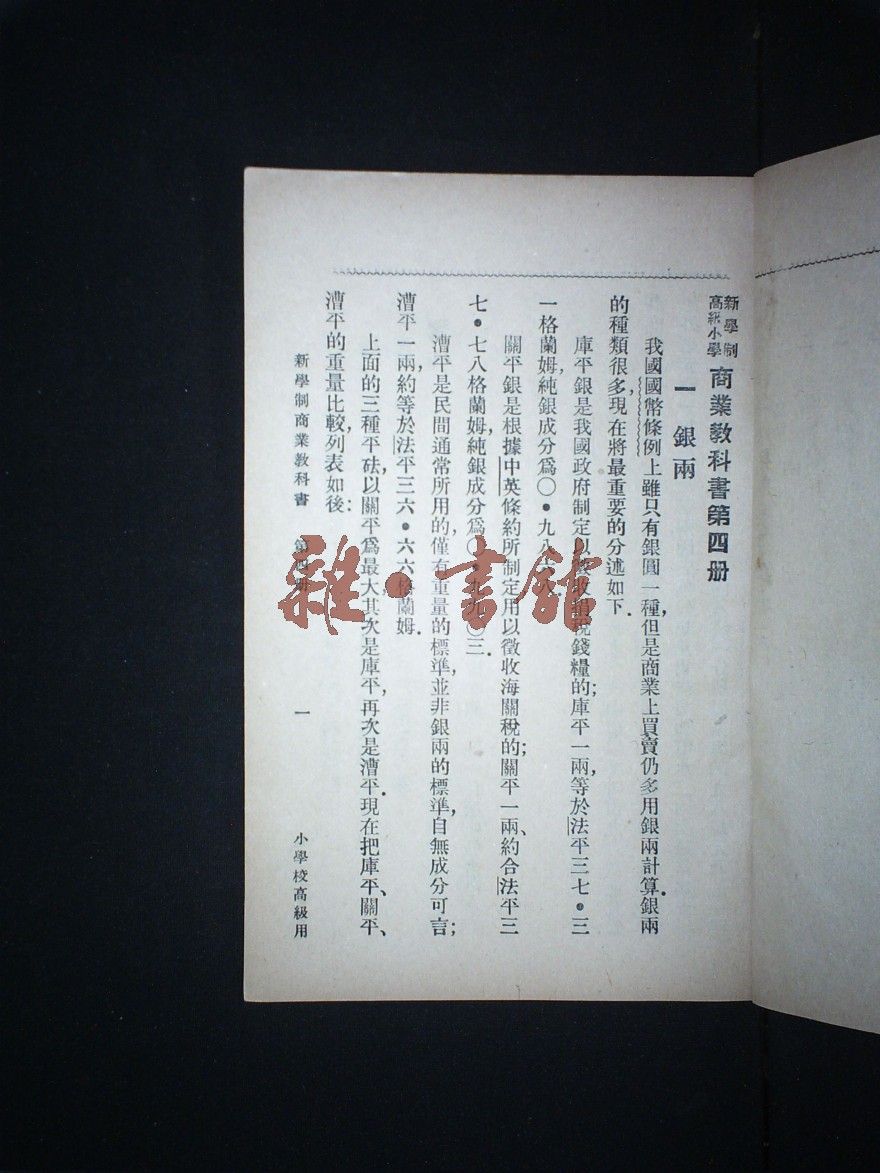 新學制
高級小學
商業教科書第四册
一 銀兩
我國國幣條例上雖只有銀圓一種,但是商業上買賣仍多用銀兩計算.銀兩
的種類很多,現在將最重要的分述如下.
庫平銀是我國政府制定以徵收租稅錢糧的;庫平一兩,等於法平三七•三
一格蘭姆,純銀成分爲〇•九八
關平銀是根據中英條約所制定用以徵收海關稅的;關平一兩、約合法平三
七•七八格蘭姆,純銀成分爲〇 〇三.
漕平是民間通常所用的,僅有重量的標準,並非銀兩的標準,自無成分可言;
漕平一兩,約等於法平三六•六六格蘭姆.
上面的三種平砝,以關平爲最大,其次是庫平,再次是漕平.現在把庫平、關平、
漕平的重量比較,列表如後:
新學制商業教科書 第四册 一 小學校高級用
雜•書館